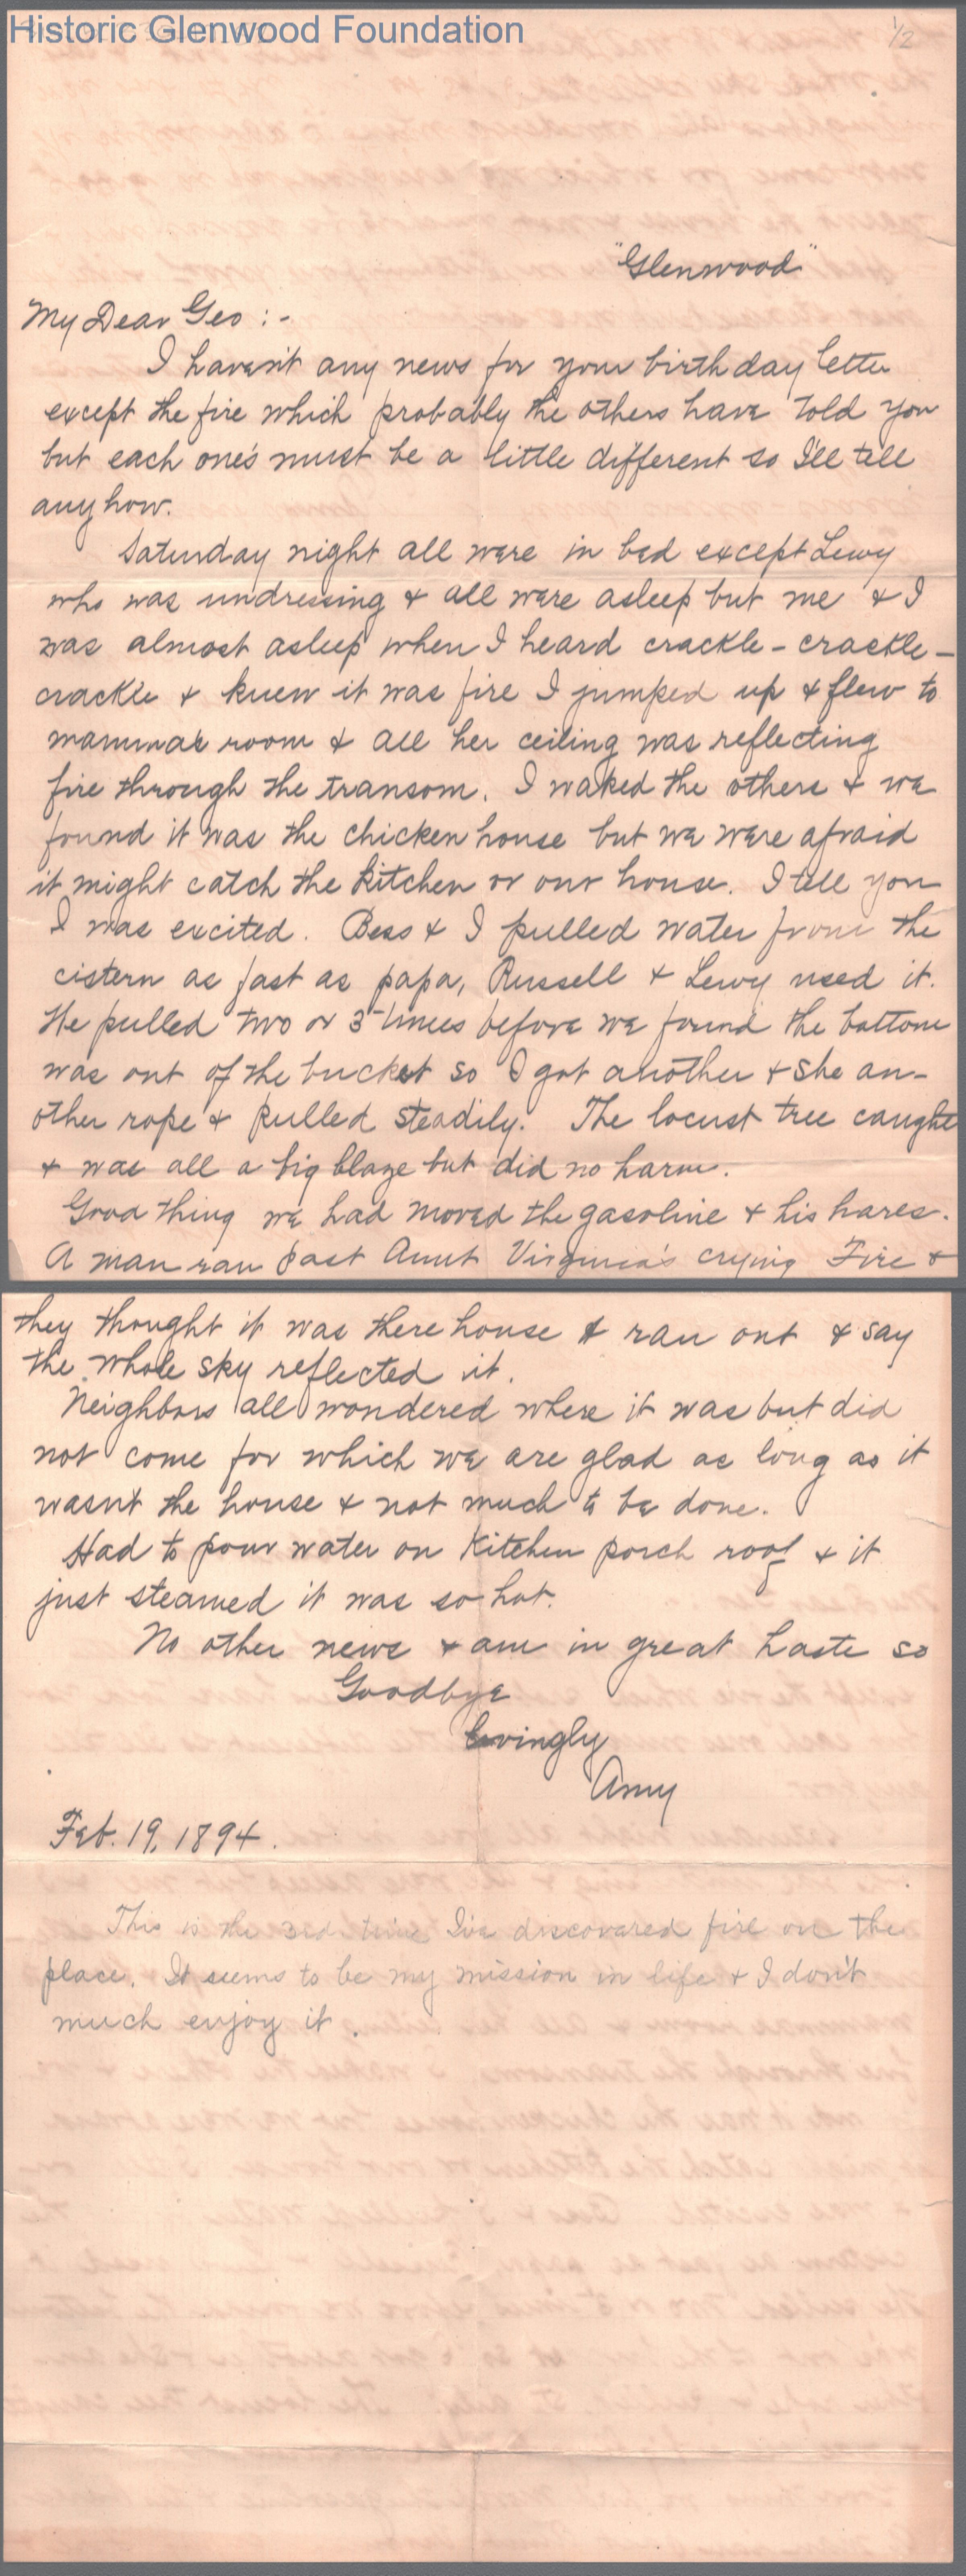 Historic Glenwood Foundation
1/2
"Glenwood"
My Dear Geo : -
I haven't any news for your birthday letter
except the fire which probably the others have told you
but each one's must be a little different so I'll tell
anyhow.
Saturday night all were in bed except Lewy
who was undressing & all were asleep but me & I
was almost asleep when I heard crackle - crackle -
crackle & knew it was fire I jumped up & flew to
mammas room & all her ceiling was reflecting
fire through the transom. I waked the others & we
found it was the chicken house but we were afraid
it might catch the kitchen or our house. I tell you
I was excited. Bess & I pulled water from the
cistern as fast as papa, Russell & Lewy used it.
We pulled two or 3 times before we found the bottom
was out of the bucket so I got another & she an-
other rope & pulled steadily. The locust tree caught
& was all a big blaze but did no harm.
Good thing we had moved the gasoline & his hares.
A man ran past Aunt Virginia's crying Fire &
they thought it was there house & ran out & say
the whole sky reflected it.
Neighbors all wondered where it was but did
not come for which we are glad as long as it
wasn't the house & not much to be done.
Had to pour water on kitchen porch roof & it
just steamed it was so hot.
No other news & am in great haste so
Goodbye
Lovingly
Amy
Feb. 19, 1894.
This is the 3rd time I've discovered fire on the
place. It seems to be my mission in life & I don't
much enjoy it.